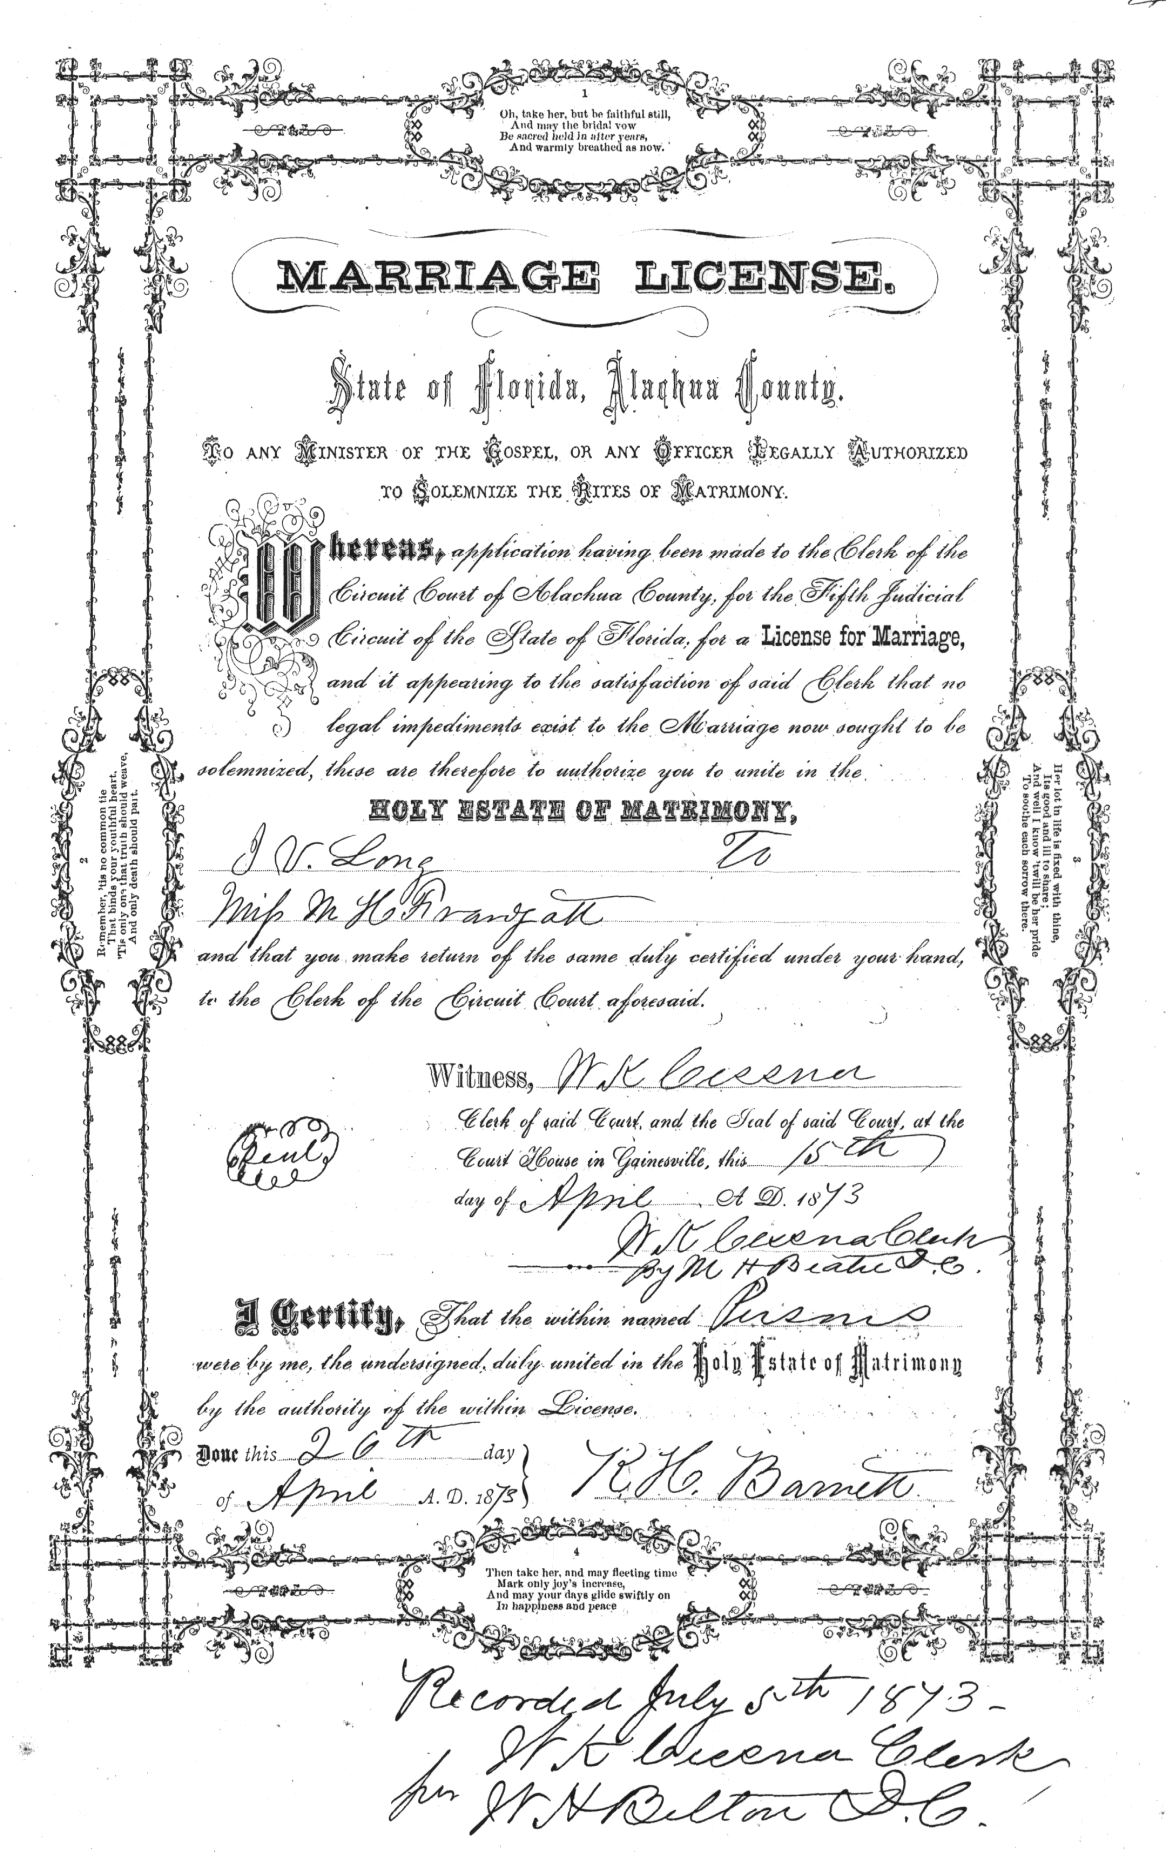 1
Oh, take her, but be faithful still,
And may the bridal vow
Be sacred held in after years,
And warmly breathed as now.
MARRIAGE LICENSE.
State of Florida, Alachua County.
TO ANY MINISTER OF THE GOSPEL, OR ANY OFFICER LEGALLY AUTHORIZED
TO SOLEMNIZE THE RITES OF MATRIMONY.
Whereas, application having been made to the Clerk of the
Circuit Court of Alachua County, for the Fifth Judicial
Circuit of the State of Florida, for a License for Marriage,
and it appearing to the satisfaction of said Clerk that no
legal impediments exist to the Marriage now sought to be
solemnized, these are therefore to authorize you to unite in the
HOLY ESTATE OF MATRIMONY,
J V. Long To
Miss M H
and that you make return of the same duly certified under your hand,
to the Clerk of the Circuit Court aforesaid.
Witness, W K Cessna
Clerk of said Court, and the Seal of said Court, at the
Court House in Gainesville, this 15th
day of April A D. 1873
W K Cessna Clerk
By M H D. C.
Seal
I Certify, That the within named Persons
were by me, the undersigned, duly united in the Holy Estate of Matrimony
by the authority of the within License.
Done this 26th day
of April A. D. 1873
R. H. Barnett
2
Remember, 'tis no common tie
That binds your youthful heart,
'Tis only one that truth should weave,
And only death should part.
3
Her lot in life is fixed with thine,
Its good and ill to share;
And well I know 'twill be her pride
To soothe each sorrow there.
4
Then take her, and may fleeting time
Mark only joy's increase,
And may your days glide swiftly on
In happiness and peace
Recorded July 5th 1873-
W K Cessna Clerk
per W H Belton D. C.